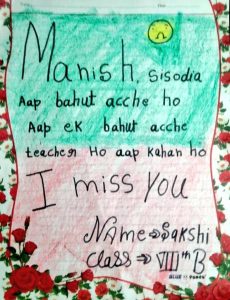 Manish Sisodia
Aap bahut acche ho
Aap ek bahut acche
teacher Ho aap kahan ho
I miss you
Name ⇒ Sakshi
Class ⇒ VIII th B